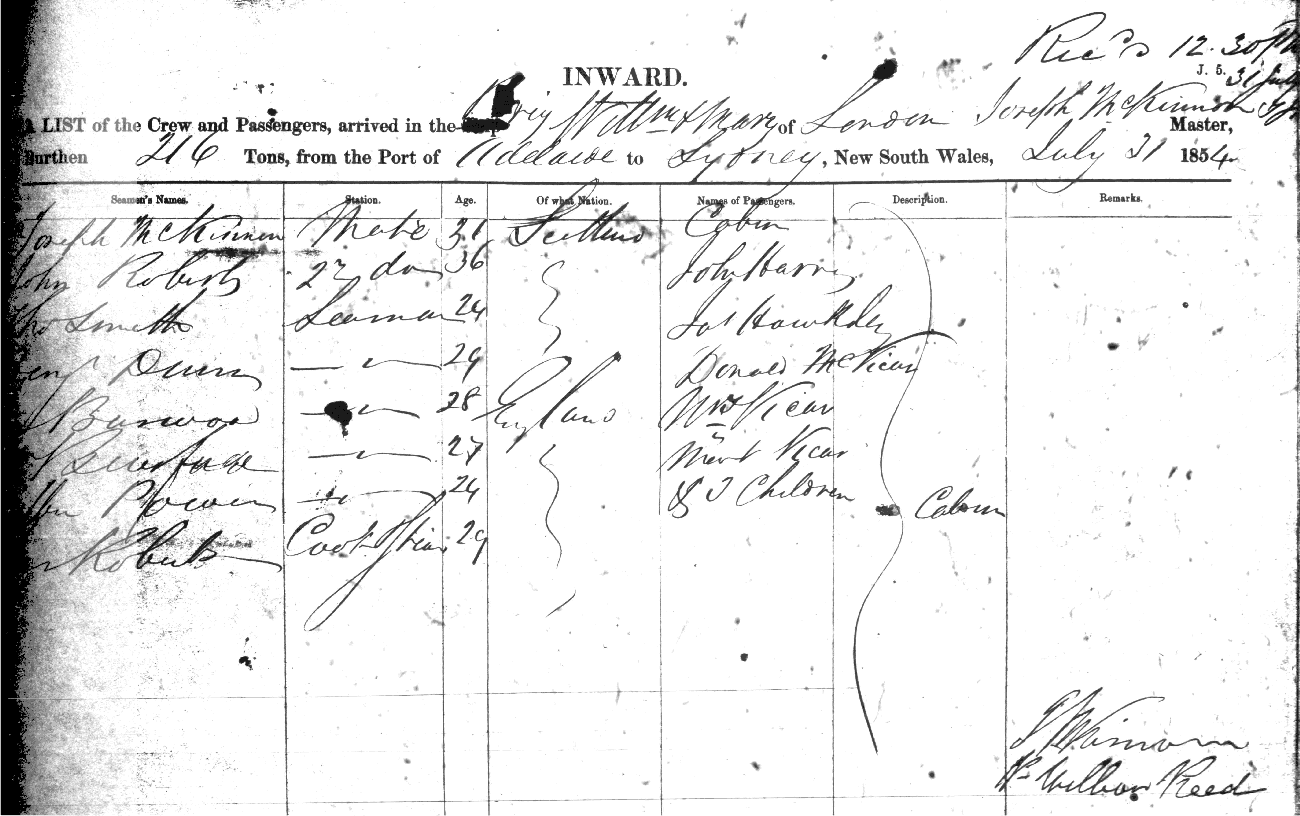 Rec'd 12.30 PM
J. 5.
31 July
INWARD.
A LIST of the Crew and Passengers, arrived in the Brig Willm & Mary of London Joseph McKinnon Master,
Burthen 216 Tons, from the Port of Adelaide to Sydney, New South Wales, July 31 1854
Seamen's Names. Station. Age. Of what Nation. Names of Passengers. Description. Remarks.
Joseph McKinnon Mate 31 Cabin
John Roberts 2nd do 36 John Harris
Tho Smith Seaman 24
Dunn — 29 Donald McVicar
— 28 England Mrs Vicar
— 27 Vicar
— 24 & 3 Children Cabin
Roberts Cook & 29
Reed